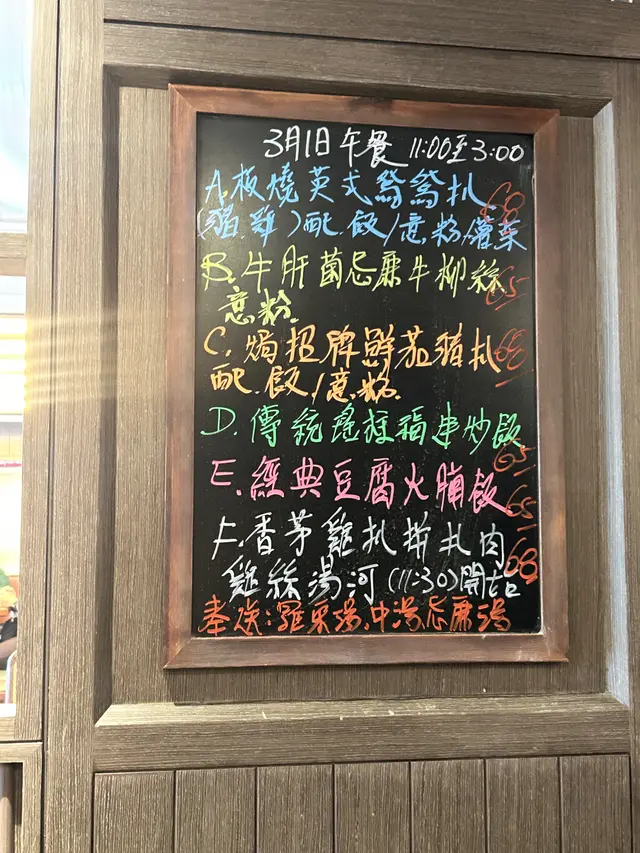 3月1日午餐 11:00至3:00
A.板燒英式鴛鴦扒 60
(豬雞)配飯/意粉/薯菜
B.牛肝菌忌廉牛柳絲 65
意粉.
C.焗招牌鮮茄豬扒 68
配飯/意粉.
D.傳統瑤柱福建炒飯 65
E.經典豆腐火腩飯 65
F.香茅雞扒拼扎肉 68
雞絲湯河(11:30)開始
奉送:羅宋湯.中湯忌廉湯